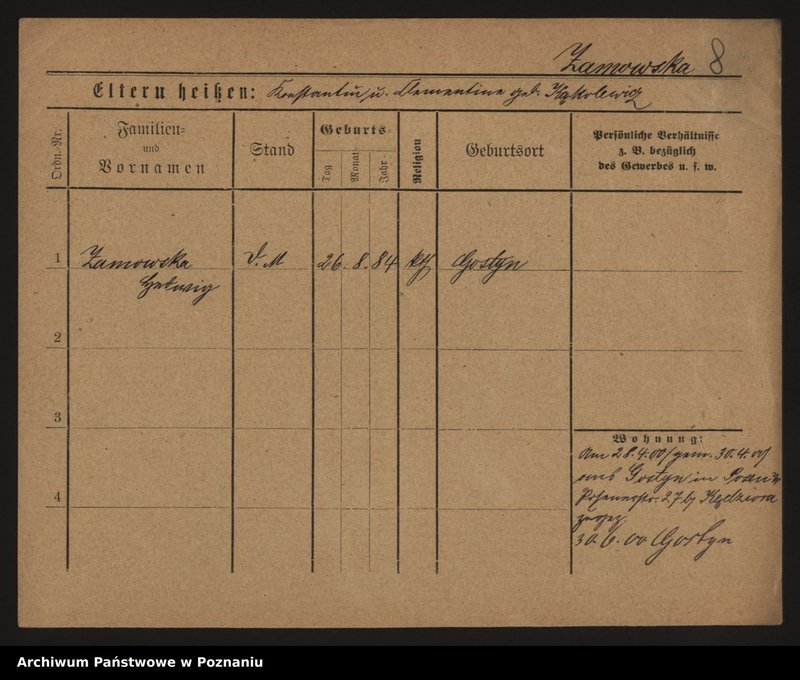 Zamowska 8
Eltern heißen: Konstantin u. Clementine geb. Kąkolewicz
Ordn.-Nr.
Familien-
und
Vornamen
Stand
Geburts
Tag
Monat
Jahr
Religion
Geburtsort
Persönliche Verhältnisse
z. B. bezüglich
des Gewerbes u. s. w.
1 Zamowska D. M 26. 8. 84 kth Gostyn
Hedwig
2
3
4
Wohnung:
Am 28.4.00/gem. 30.4.00/
aus Gostyn in
Posenerstr. 27 b/ Kędziora
zugez.
30.6.00 Gostyn
Archiwum Państwowe w Poznaniu